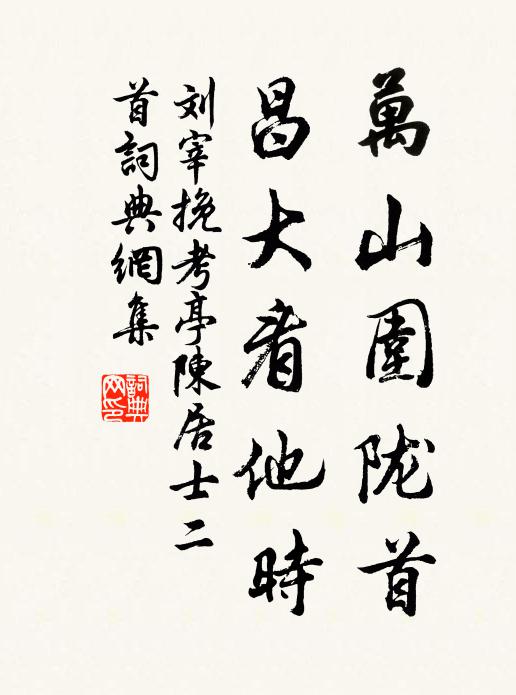 萬山圍陇首
昌大看他時
刘宰挽考亭陳居士二
首詞典網集
詞典
网印